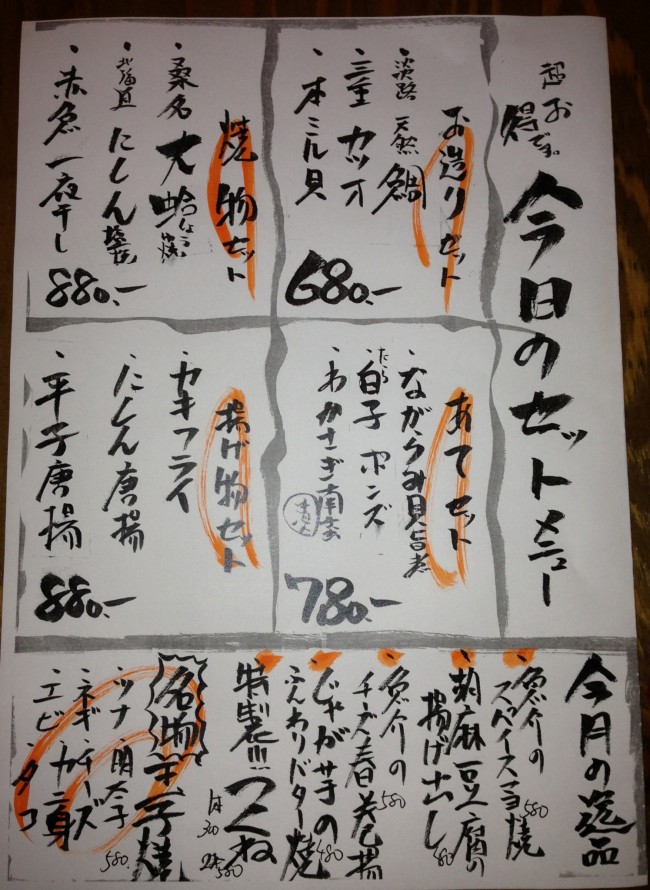 超お
得です。
今日のセットメニュー
お造りセット
・淡路 天然 鯛
・三重 カツオ
・本ミル貝
680.-
焼物セット
・桑名 大蛤
・北海道 にしん
・赤魚一夜干し
880.-
あてセット
・ながらみ貝旨煮
・たら白子ポンズ
・わかさぎ南蛮漬
780.-
揚げ物セット
・カキフライ
・にしん唐揚
・平子唐揚
880.-
今月の逸品
・魚介の
スパイスマヨ焼
580
・胡麻豆腐の
揚げ出し
・魚介の
チーズ春巻揚
580
・じゃが芋の
ふんわりバター焼
480
・特製!!!つくね
1本30
2本580
名物玉子焼
・ツナ・明太子
・ネギ・チーズ
・エビ・カニ身
・タコ
580.